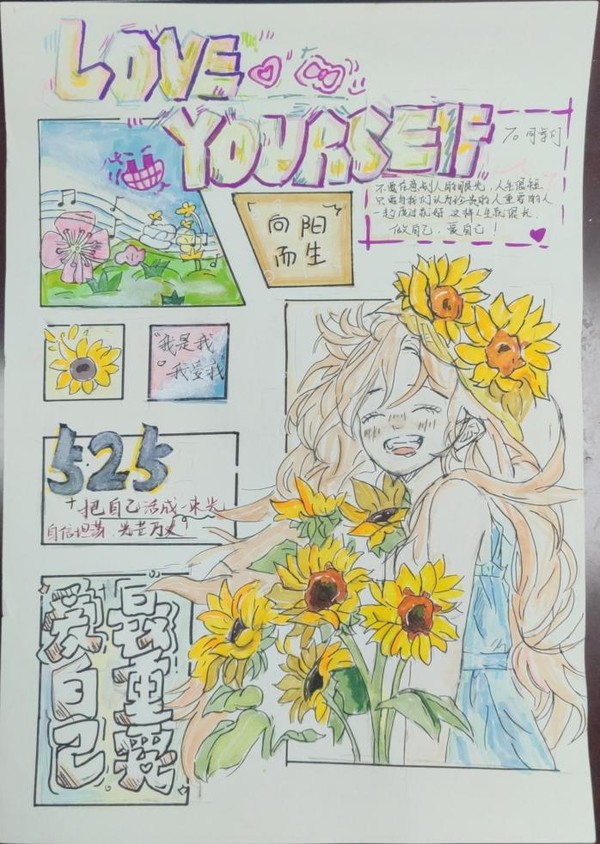 LOVE
YOURSELF
To 同学们
不要在意别人的眼光，人生很短
只要与我们认为珍贵的人重要的人
一起度过就好 这样人生就很长.
做自己，爱自己！
向阳
而生
"我是我
我爱我
525
"把自己活成一束光
自信坦荡，光芒万丈"
最重要
爱自己